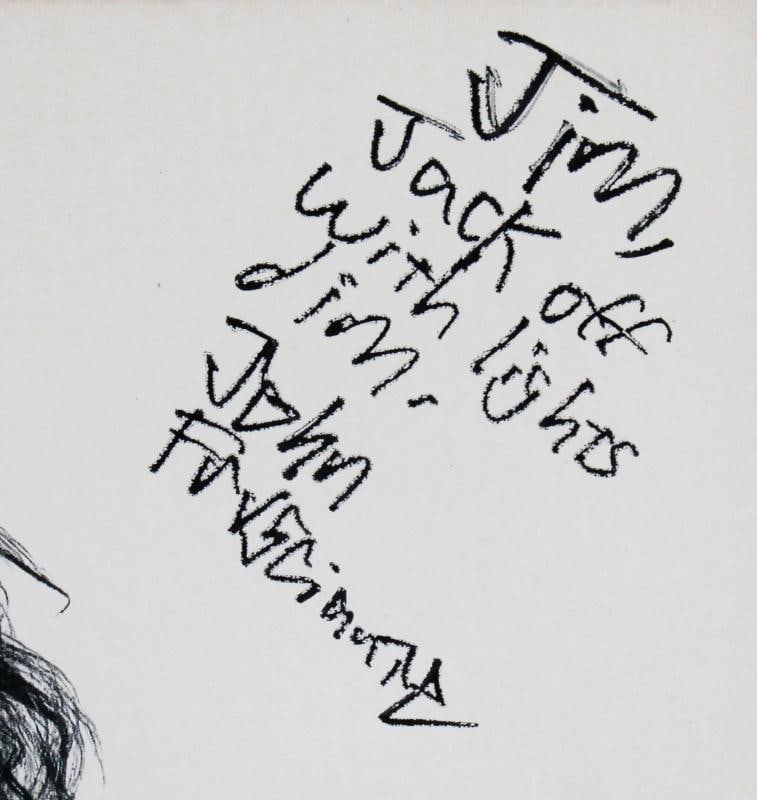 Jim,
Jack off
with lights
dim.
John
Frusciante